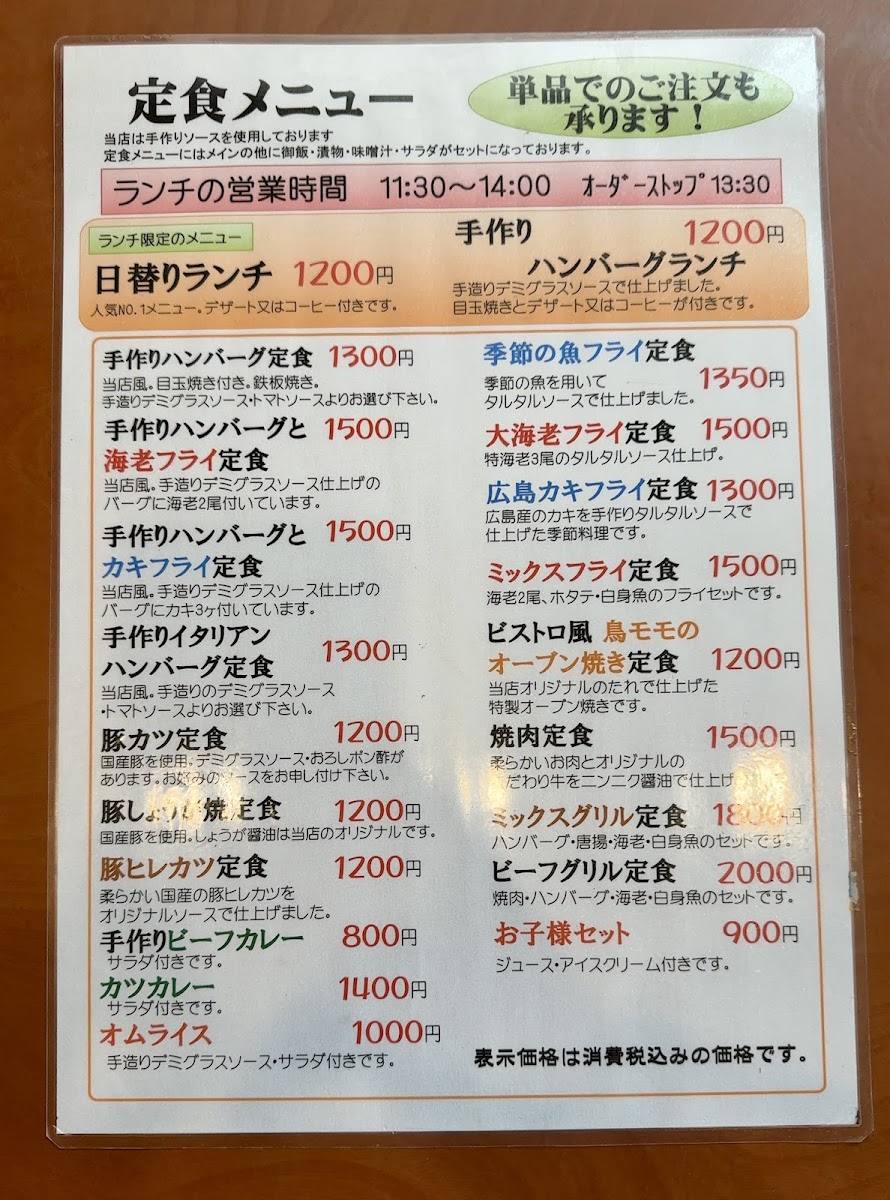 定食メニュー
単品でのご注文も
承ります！
当店は手作りソースを使用しております
定食メニューにはメインの他に御飯・漬物・味噌汁・サラダがセットになっております。
ランチの営業時間 11:30～14:00 ｵｰﾀﾞｰｽﾄｯﾌﾟ13:30
ランチ限定のメニュー
日替りランチ 1200円
人気NO.1メニュー。デザート又はコーヒー付きです。
手作り 1200円
ハンバーグランチ
手造りデミグラスソースで仕上げました。
目玉焼きとデザート又はコーヒーが付きです。
手作りハンバーグ定食 1300円
当店風。目玉焼き付き。鉄板焼き。
手造りデミグラスソース・トマトソースよりお選び下さい。
手作りハンバーグと 1500円
海老フライ定食
当店風。手造りデミグラスソース仕上げの
バーグに海老2尾付いています。
手作りハンバーグと 1500円
カキフライ定食
当店風。手造りデミグラスソース仕上げの
バーグにカキ3ヶ付いています。
手作りイタリアン
ハンバーグ定食 1300円
当店風。手造りのデミグラスソース
・トマトソースよりお選び下さい。
豚カツ定食 1200円
国産豚を使用。デミグラスソース・おろしポン酢が
あります。お好みのソースをお申し付け下さい。
豚しょうが焼定食 1200円
国産豚を使用。しょうが醤油は当店のオリジナルです。
豚ヒレカツ定食 1200円
柔らかい国産の豚ヒレカツを
オリジナルソースで仕上げました。
手作りビーフカレー 800円
サラダ付きです。
カツカレー 1400円
サラダ付きです。
オムライス 1000円
手造りデミグラスソース・サラダ付きです。
季節の魚フライ定食
1350円
季節の魚を用いて
タルタルソースで仕上げました。
大海老フライ定食 1500円
特海老3尾のタルタルソース仕上げ。
広島カキフライ定食 1300円
広島産のカキを手作りタルタルソースで
仕上げた季節料理です。
ミックスフライ定食 1500円
海老2尾、ホタテ・白身魚のフライセットです。
ビストロ風 鳥モモの
オーブン焼き定食 1200円
当店オリジナルのたれで仕上げた
特製オーブン焼きです。
焼肉定食 1500円
柔らかいお肉とオリジナルの
だわり牛をニンニク醤油で仕上げ
ミックスグリル定食 1800円
ハンバーグ・唐揚・海老・白身魚のセットです。
ビーフグリル定食 2000円
焼肉・ハンバーグ・海老・白身魚のセットです。
お子様セット 900円
ジュース・アイスクリーム付きです。
表示価格は消費税込みの価格です。